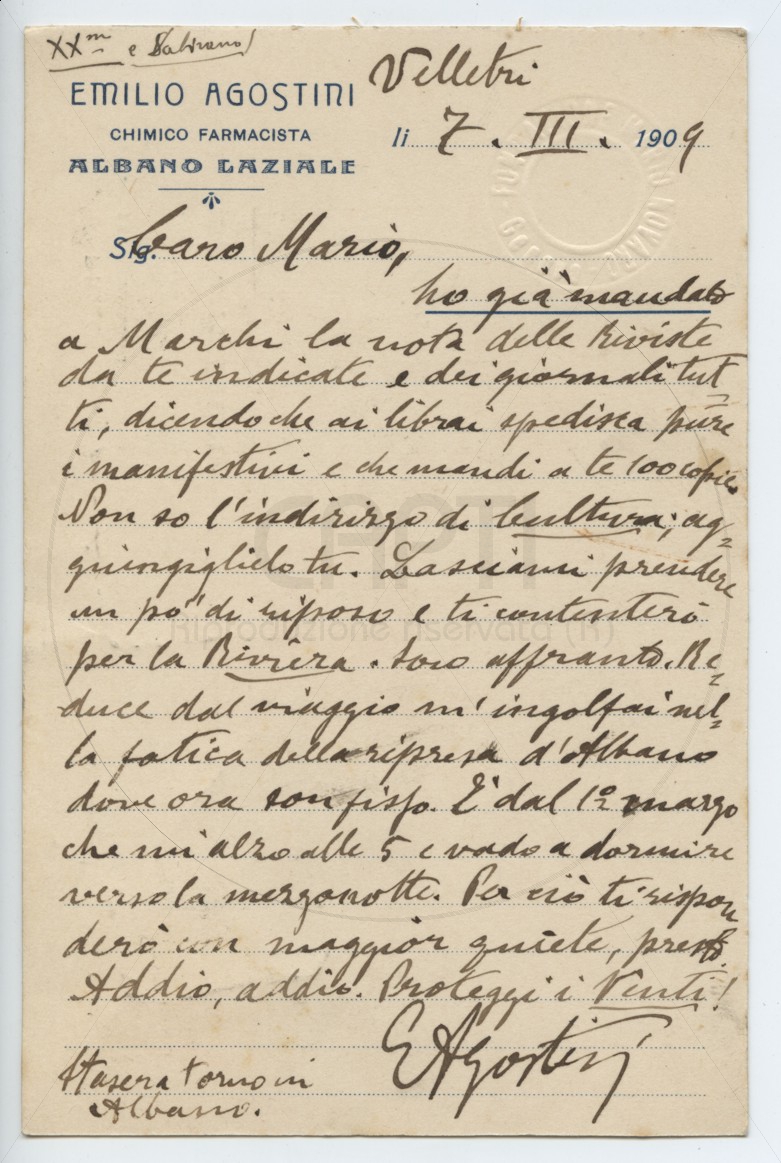 XXm e
EMILIO AGOSTINI
CHIMICO FARMACISTA
ALBANO LAZIALE
Velletri
li 7. III. 1909
Sig. Caro Mario,
ho già mandato
a Marchi la nota delle Riviste
da te indicate e dei giornali tut=
ti, dicendo che ai librai spedisca pure
i manifestini e che mandi a te 100 copie.
Non so l'indirizzo di Cultura; ag=
giungiglielo tu. Lasciami prendere
un po' di riposo e ti contenterò
per la Rivièra. Sono affranto. Re=
duce dal viaggio m'ingolfai nel=
la fatica della ripresa d'Albano
dove ora son fisso. È dal 1º marzo
che mi alzo alle 5 e vado a dormire
verso la mezzanotte. Per ciò ti rispon
derò con maggior quiete, presto.
Addio, addio. Proteggi i Venti!
EAgostini
Stasera torno in
Albano.
riproduzione riservata